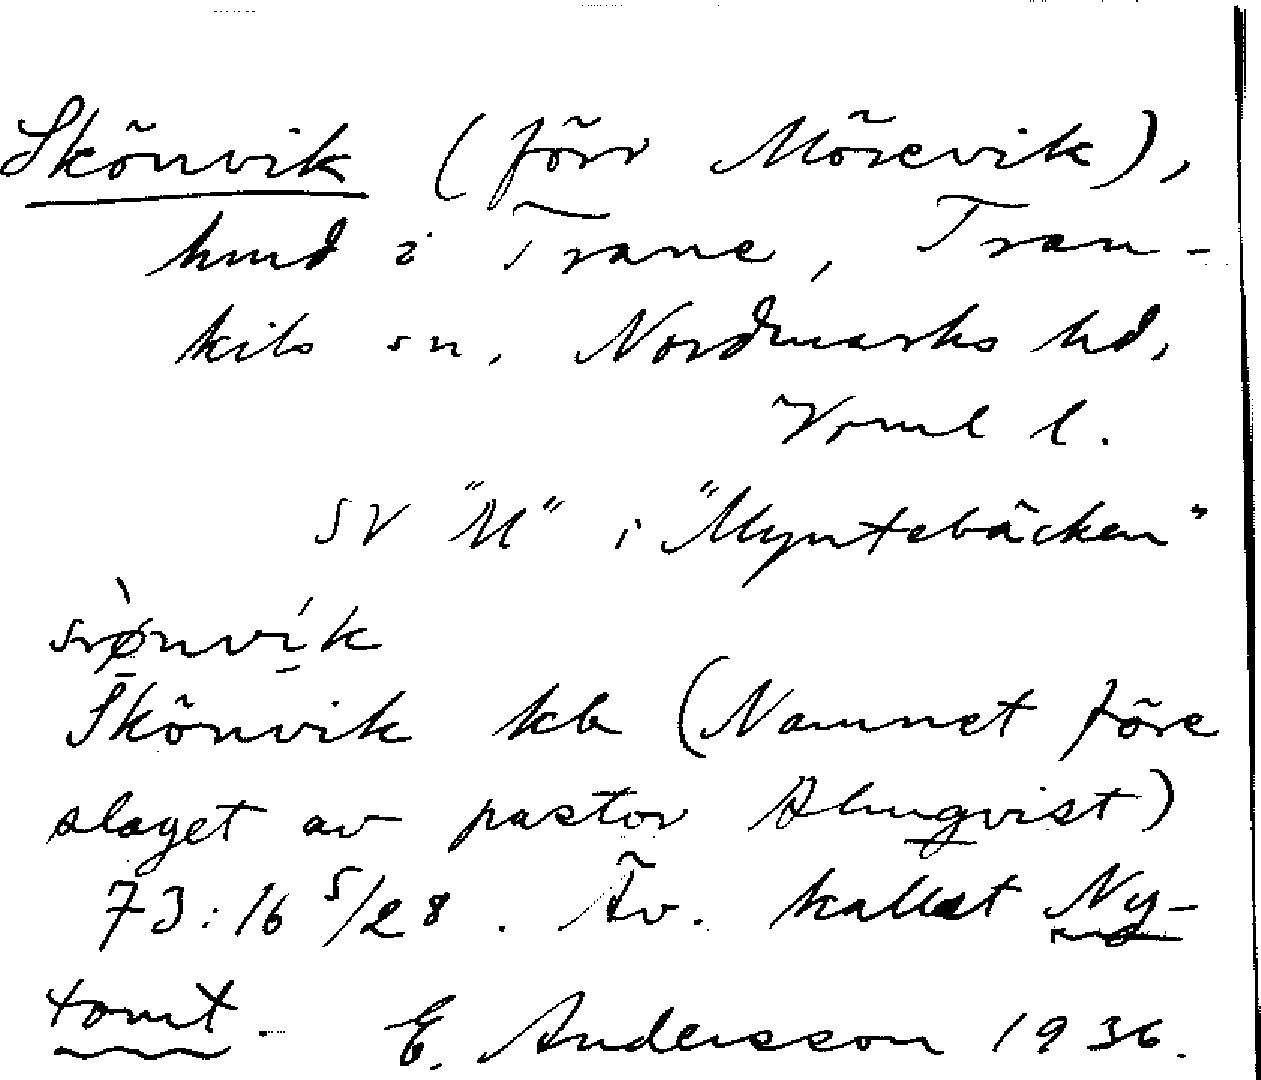 Skönvik (förr Mörevik),
hmd i Trane, Tran-
kils sn, Nordmarks hd,
Vrml l.
SV "M" i "Myntebäcken"
Skönvik kb (Namnet före
slaget av pastor Almqvist)
73:16 5/28. Äv. kallat Ny-
tomt. E. Andersson 1936.